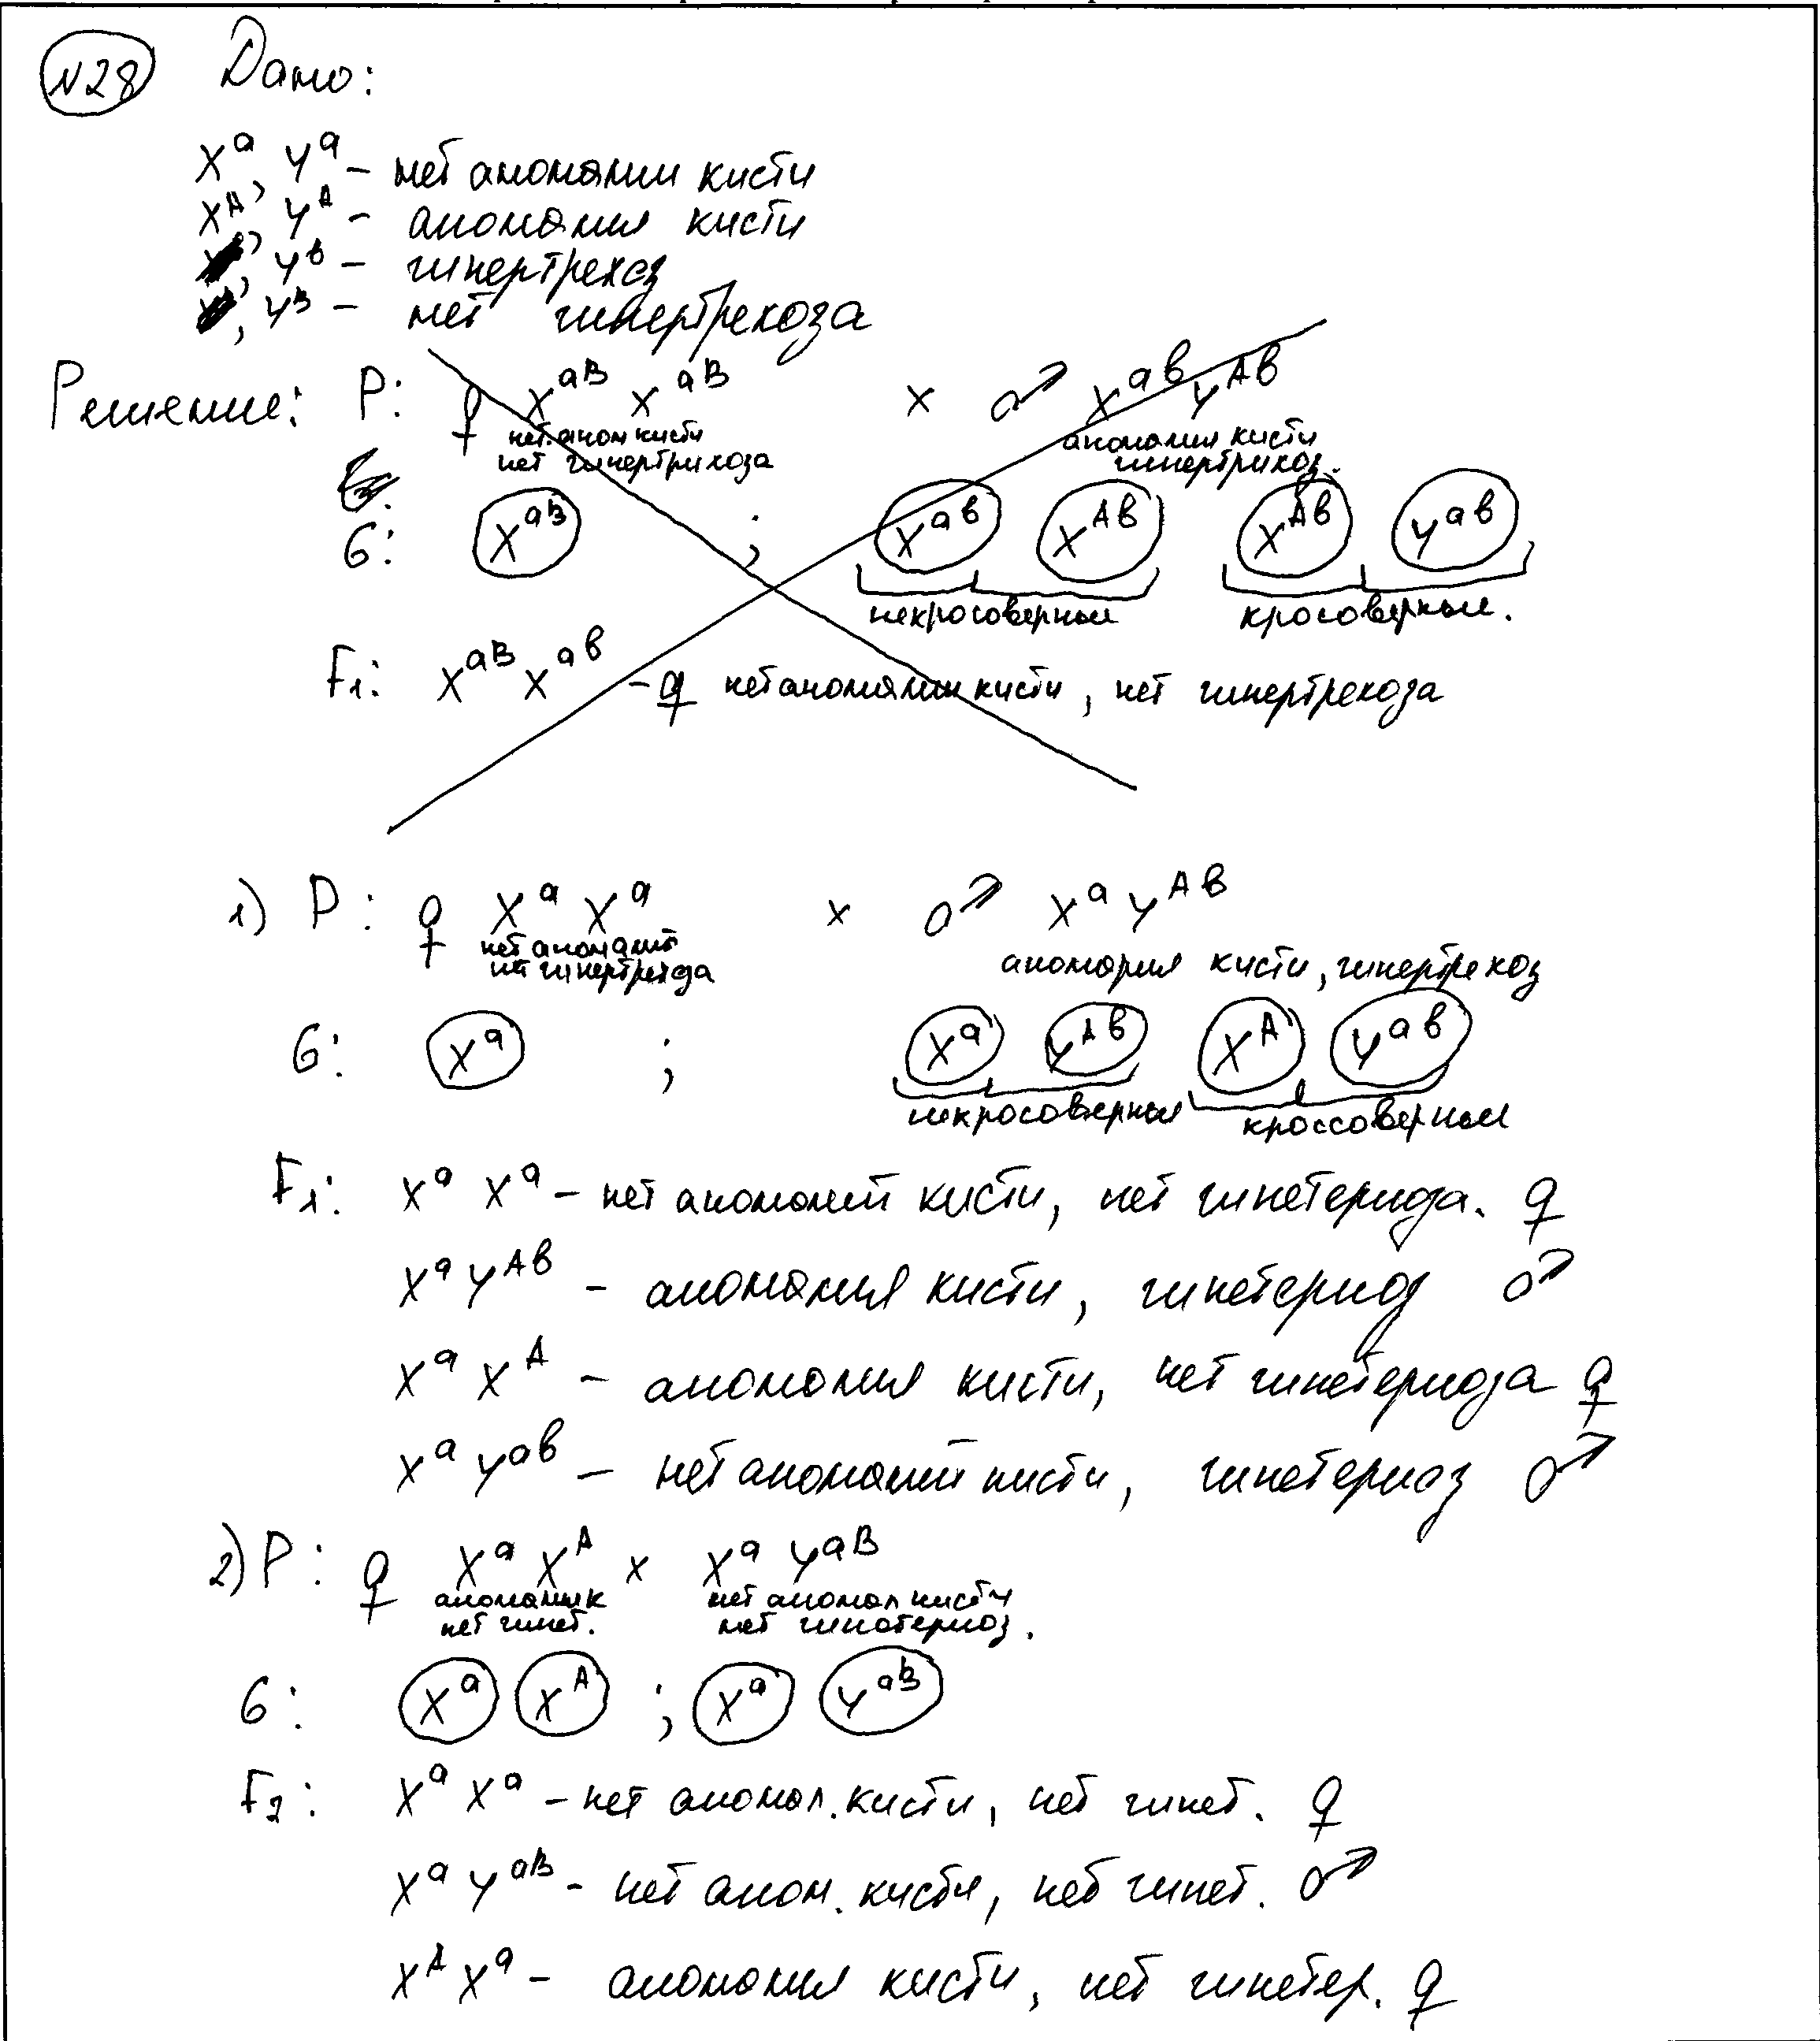 N28 Дано:
Xᵃ Yᵃ – нет аномалии кисти
Xᴬ, Yᴬ – аномалия кисти
, Yᵇ – гипертрехоз
, Yᴮ – нет гипертрехоза
Решение: P: ♀ XᵃᴮXᵃᴮ × ♂ XᵃᵇYᴬᵇ
нет. аном кисти аномалия кисти
нет гипертрихоза гипертрихоз.
G: Xᵃᴮ ; Xᵃᵇ Xᴬᵇ Xᴬᵇ Yᵃᵇ
некросоверные кросоверные.
F₁: XᵃᴮXᵃᵇ – ♀ нет аномалии кисти, нет гипертрехоза
1) P: ♀ XᵃXᵃ × ♂ XᵃYᴬᵇ
нет аномалий аномария кисти, гипертрехоз
нет гипертрехоза
G: Xᵃ ; Xᵃ Yᴬᵇ Xᴬ Yᵃᵇ
некросоверные кроссоверные
F₁: Xᵃ Xᵃ – нет аномалий кисти, нет гипетериоза. ♀
XᵃYᴬᵇ – аномалия кисти, гипетериоз ♂
Xᵃ Xᴬ – аномалия кисти, нет гипетериоза ♀
Xᵃ Yᵃᵇ – нет аномалий кисти, гипетериоз ♂
2) P: ♀ Xᵃ Xᴬ × Xᵃ Yᵃᴮ
аномалия к нет аномал кисти
нет гипет. нет гипотериоз.
G: Xᵃ Xᴬ ; Xᵃ Yᵃᴮ
F₂: Xᵃ Xᵃ – нет аномал. кисти, нет гипет. ♀
Xᵃ Yᵃᴮ – нет аном. кисти, нет гипет. ♂
Xᴬ Xᵃ – аномалия кисти, нет гипетер. ♀